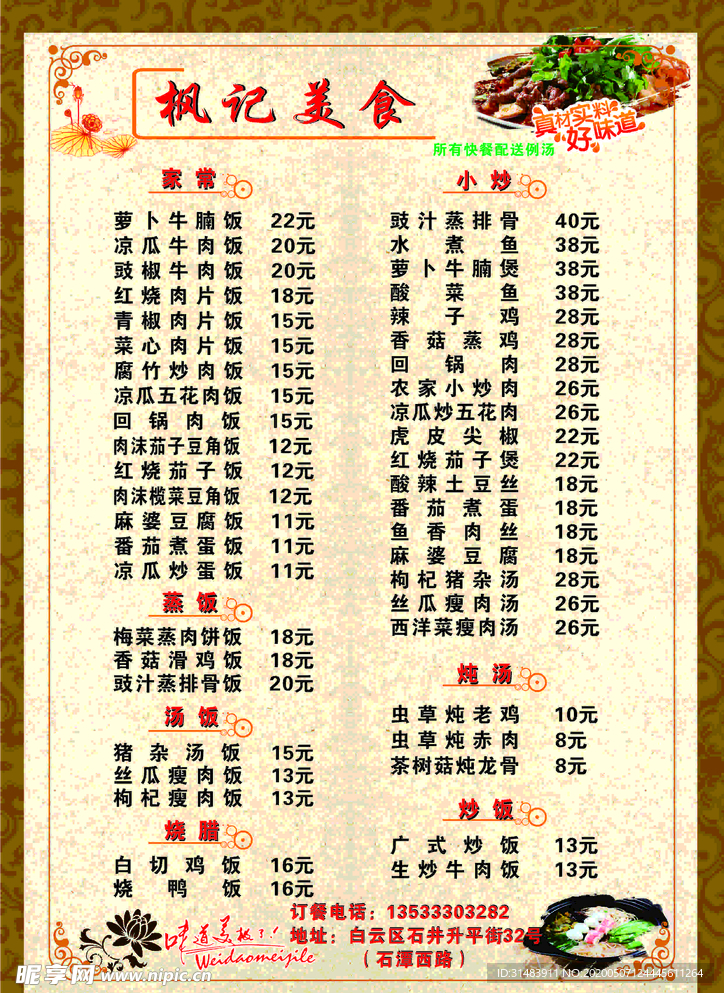 枫记美食
真材实料
好味道
所有快餐配送例汤
家常
萝卜牛腩饭 22元
凉瓜牛肉饭 20元
豉椒牛肉饭 20元
红烧肉片饭 18元
青椒肉片饭 15元
菜心肉片饭 15元
腐竹炒肉饭 15元
凉瓜五花肉饭 15元
回锅肉饭 15元
肉沫茄子豆角饭 12元
红烧茄子饭 12元
肉沫榄菜豆角饭 12元
麻婆豆腐饭 11元
番茄煮蛋饭 11元
凉瓜炒蛋饭 11元
蒸饭
梅菜蒸肉饼饭 18元
香菇滑鸡饭 18元
豉汁蒸排骨饭 20元
汤饭
猪杂汤饭 15元
丝瓜瘦肉饭 13元
枸杞瘦肉饭 13元
烧腊
白切鸡饭 16元
烧鸭饭 16元
小炒
豉汁蒸排骨 40元
水煮鱼 38元
萝卜牛腩煲 38元
酸菜鱼 38元
辣子鸡 28元
香菇蒸鸡 28元
回锅肉 28元
农家小炒肉 26元
凉瓜炒五花肉 26元
虎皮尖椒 22元
红烧茄子煲 22元
酸辣土豆丝 18元
番茄煮蛋 18元
鱼香肉丝 18元
麻婆豆腐 18元
枸杞猪杂汤 28元
丝瓜瘦肉汤 26元
西洋菜瘦肉汤 26元
炖汤
虫草炖老鸡 10元
虫草炖赤肉 8元
茶树菇炖龙骨 8元
炒饭
广式炒饭 13元
生炒牛肉饭 13元
味道美极了!
Weidaomeijile
订餐电话：13533303282
地址：白云区石井升平街32号
（石潭西路）
昵享网 www.nipic.cn
ID:31483911 NO:20200507124445611264